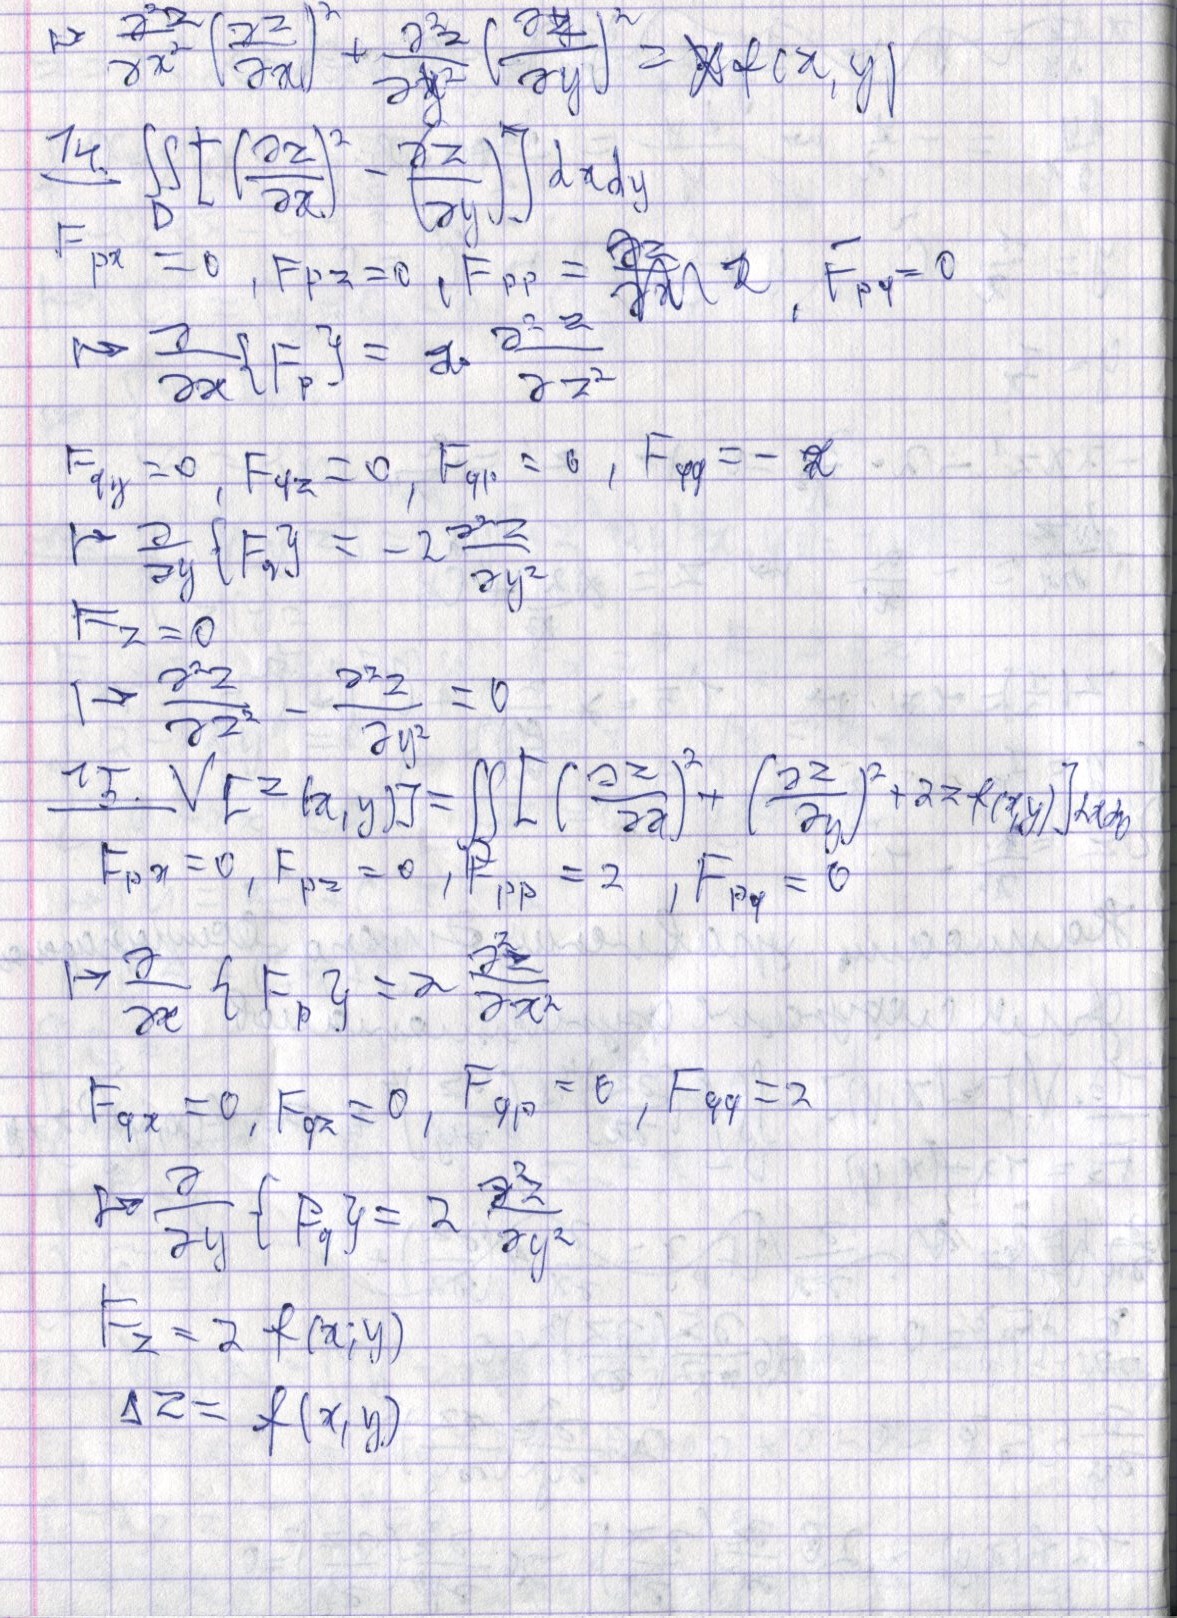 ↦ ∂²z/∂x² (∂z/∂x)² + ∂²z/∂y² (∂z/∂y)² = f(x,y)
14. ∬_D [(∂z/∂x)² - (∂z/∂y)²] dxdy
F_px = 0, F_pz = 0, F_pp = 2, F_pq = 0
↦ ∂/∂x {F_p} = 2 ∂²z/∂z²
F_qy = 0, F_qz = 0, F_qp = 0, F_qq = - 2
↦ ∂/∂y {F_q} = - 2 ∂²z/∂y²
F_z = 0
↦ ∂²z/∂z² - ∂²z/∂y² = 0
15. V[z(x,y)] = ∬_D [(∂z/∂x)² + (∂z/∂y)² + 2z f(x,y)] dxdy
F_px = 0, F_pz = 0, F_pp = 2, F_pq = 0
↦ ∂/∂x {F_p} = 2 ∂²z/∂x²
F_qx = 0, F_qz = 0, F_qp = 0, F_qq = 2
↦ ∂/∂y {F_q} = 2 ∂²z/∂y²
F_z = 2 f(x,y)
Δz = f(x,y)